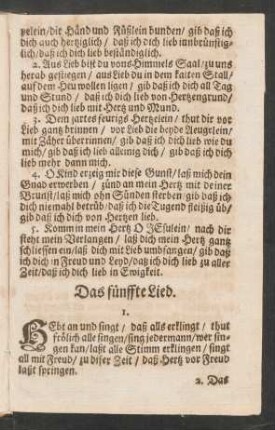 tzelein/die Händ und Füßlein bunden/ gib daß ich
dich auch hertziglich/ daß ich dich lieb innbrünstig-
lich/ daß ich dich lieb beständiglich.
2. Aus Lieb bist du vons Himmels Saal/ zu uns
herab gestiegen/ aus Lieb du in dem kalten Stall/
auf dem Heu wollen ligen/ gib daß ich dich all Tag
und Stund/ daß ich dich lieb von Hertzengrund/
daß ich dich lieb mit Hertz und Mund.
3. Dein zartes feurigs Hertzlein/ thut dir vor
Lieb gantz brinnen/ vor Lieb die beyde Aeugelein/
mit Zäher überrinnen/ gib daß ich dich lieb wie du
mich/ gib daß ich dich lieb alleinig dich/ gib daß ich dich
lieb mehr dann mich.
4. O Kind erzeig mir diese Gunst/ laß mich dein
Gnad erwerben/ zünd an mein Hertz mit deiner
Brunst/ laß mich ohn Sünden sterben/ gib daß ich
dich niemahl betrüb/ daß ich die Tugend fleißig üb/
gib daß ich dich von Hertzen lieb.
5. Komm in mein Hertz O JEsulein/ nach dir
steht mein Verlangen/ laß dich mein Hertz gantz
schliessen ein/ laß dich mit Lieb umbfangen/ gib daß
ich dich in Freud und Leyd/ daß ich dich lieb zu aller
Zeit/ daß ich dich lieb in Ewigkeit.
Das fünffte Lied.
1.
HEbt an und singt/ daß alls erklingt/ thut
frölich alle singen/ sing jedermann/ wer sin-
gen kan/ laßt alle Stimm erklingen/ singt
all mit Freud/ zu diser Zeit/ daß Hertz vor Freud
laßt springen.
2. Das